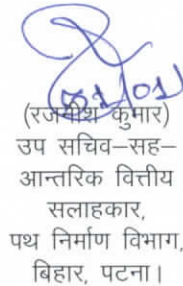 31/01
(रजनीश कुमार)
उप सचिव–सह–
आन्तरिक वित्तीय
सलाहकार,
पथ निर्माण विभाग,
बिहार, पटना।